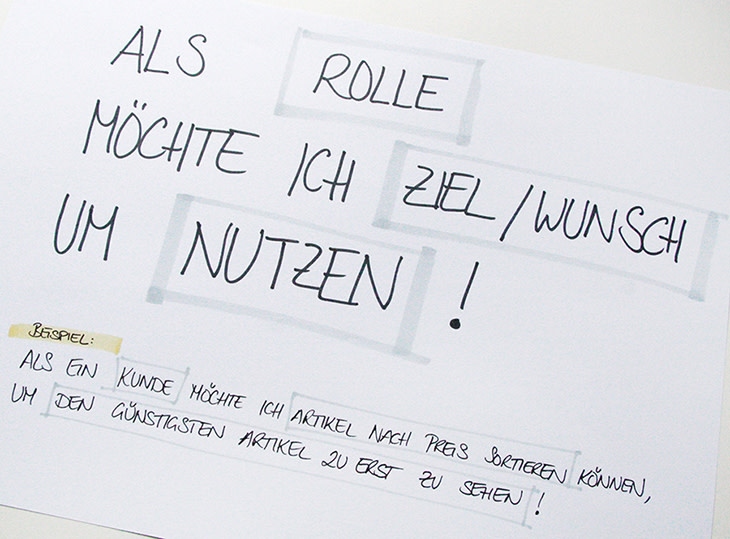 ALS ROLLE
MÖCHTE ICH ZIEL/WUNSCH
UM NUTZEN!
BEISPIEL:
ALS EIN KUNDE MÖCHTE ICH ARTIKEL NACH PREIS SORTIEREN KÖNNEN,
UM DEN GÜNSTIGSTEN ARTIKEL ZU ERST ZU SEHEN!